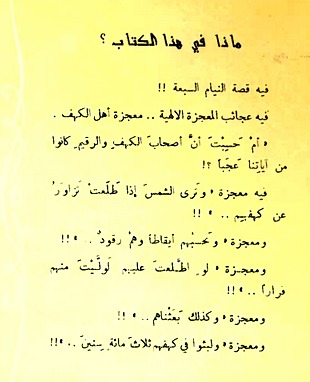 ماذا في هذا الكتاب ؟
فيه قصة النيام السبعة !!
فيه عجائب المعجزة الالهية .. معجزة أهل الكهف .
« أمْ حَسِبْتَ أنَّ أصحابَ الكهفِ والرقيمِ كانوا
من آياتِنا عَجَباً ؟!
فيه معجزة « وتَرى الشمسَ إذا طَلَعتْ تَزاوَرُ
عن كهفِهِم .. » !!
ومعجزة « وتَحسبُهم أيقاظاً وهمْ رقودٌ .. »!!
ومعجزة « لو اطَّلعتَ عليهم لَولَّيْتَ منهم
فراراً .. »!!
ومعجزة « وكذلك بَعَثْناهم .. » !!
ومعجزة « ولبثوا في كهفهم ثلاثَ مائةٍ سِنينَ .. »!!